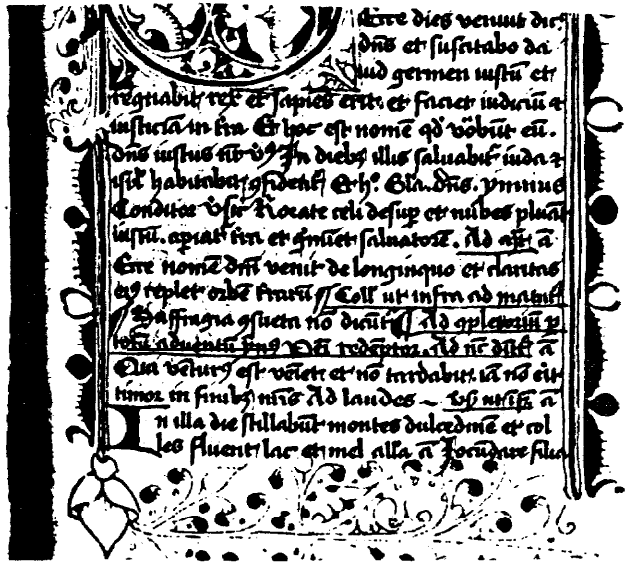 Ecce dies veniunt dic̄
dn̄s et suscitabo da
uid germen iustū et
regnabit rex et sapiēs erit. et faciet iudiciū ⁊
iusticiā in t̄ra Et hoc est nomē qd̄ vocabūt eū.
dn̄s iustus nr̄ In diebꝫ illis saluabit̄ iuda ⁊
isrl̄ habitabit ꝯfident̄ Et hoc Gla. dn̄s. ymnus
Conditor Rorate celi desuꝑ et nubes pluāt
iustū. aꝑiat̄ t̄ra et gīnet saluatorē. Ad ā
Ecce nomē dn̄i venit de longinquo et claritas
eiꝰ replet orbē t̄rarū Coll̄ ut infra ad
Suffragia ꝯsueta nō dicūt̄ Ad ꝯpletoriū ꝑ
totū aduentū redēptor. Ad nc̄ ā
Qui vēturꝰ est veīet et nō tardabit. iā nō erit
timor in finibꝫ nr̄is Ad laudes ā
In illa die stillabūt montes dulcedinē et col
les fluent lac et mel all̄a ā Iocundare filia